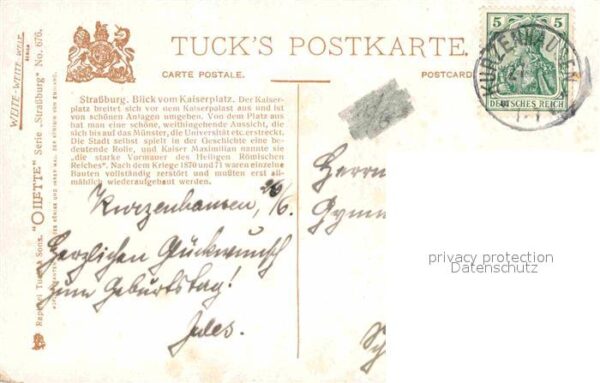 WEITE-WEITE-WELT
SERIE
Raphael Tuck & Sons. "OILETTE" Serie „Straßburg" No. 676.
TUCK'S POSTKARTE.
CARTE POSTALE.
POSTCARD
5 5
DEUTSCHES REICH
KURZENHAUSEN
Straßburg. Blick vom Kaiserplatz. Der Kaiser-
platz breitet sich vor dem Kaiserpalast aus und ist
von schönen Anlagen umgeben. Von dem Platz aus
hat man eine schöne, weithingehende Aussicht, die
sich bis auf das Münster, die Universität etc. erstreckt.
Die Stadt selbst spielt in der Geschichte eine be-
deutende Rolle, und Kaiser Maximilian nannte sie
„die starke Vormauer des Heiligen Römischen
Reiches". Nach dem Kriege 1870 und 71 waren einzelne
Bauten vollständig zerstört und mußten erst all-
mählich wiederaufgebaut werden.
Kurzenhausen, 26/6.
Herzlichen Glückwunsch
zum Geburtstag!
Jules.
Herrn
Gymn
Sch
privacy protection
Datenschutz